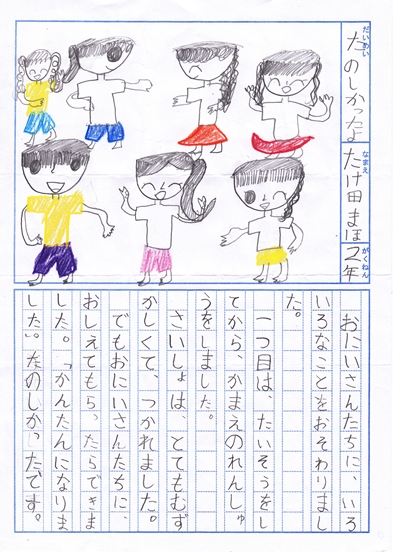 だいめい
たのしかったよ
なまえ
たけ田まほ
がくねん
2年
おにいさんたちに、いろ
いろなことをおそわりまし
た。
一つ目は、たいそうをし
てから、かまえのれんしゅ
うをしました。
さいしょは、とてもむず
かしくて、つかれました。
でもおにいさんたちに、
おしえてもらったらできま
した。「かんたんになりま
した」。たのしかったです。